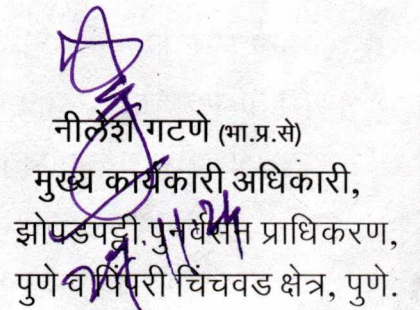 नीलेश गटणे (भा.प्र.से)
मुख्य कार्यकारी अधिकारी,
झोपडपट्टी पुनर्वसन प्राधिकरण,
पुणे व पिंपरी चिंचवड क्षेत्र, पुणे.